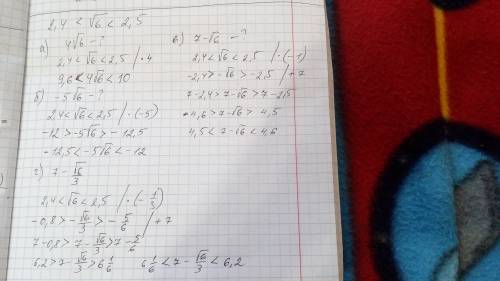 2,4 < √6 < 2,5
а) 4√6 - ?
2,4 < √6 < 2,5 / · 4
9,6 < 4√6 < 10
б) -5√6 - ?
2,4 < √6 < 2,5 / · (-5)
-12 > -5√6 > -12,5
-12,5 < -5√6 < -12
в) 7 - √6 - ?
2,4 < √6 < 2,5 / · (-1)
-2,4 > -√6 > -2,5 / + 7
7 - 2,4 > 7 - √6 > 7 - 2,5
4,6 > 7 - √6 > 4,5
4,5 < 7 - √6 < 4,6
г) 7 - √6/3
2,4 < √6 < 2,5 / · (-1/3)
-0,8 > -√6/3 > -5/6 / + 7
7 - 0,8 > 7 - √6/3 > 7 - 5/6
6,2 > 7 - √6/3 > 6 1/6 6 1/6 < 7 - √6/3 < 6,2